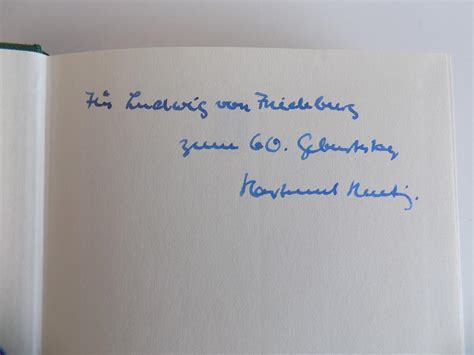 Für Ludwig von Friedeburg
zum 60. Geburtstag
Hartmut Hentig.